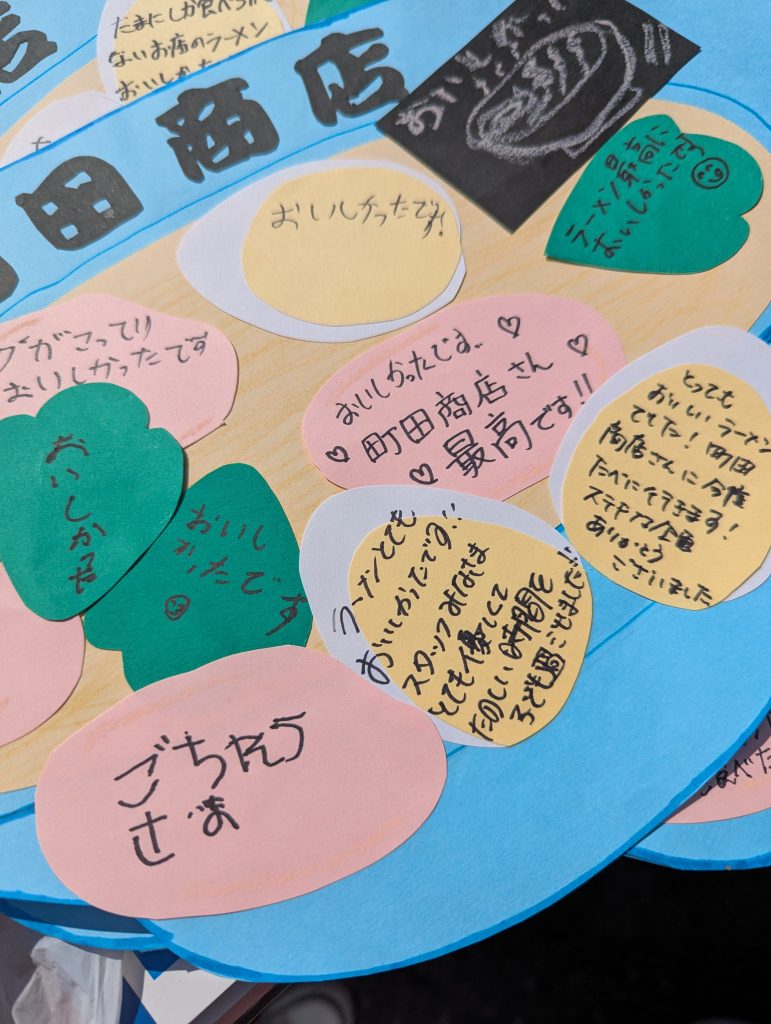 たまにしか食べられ
ないお店のラーメン
おいしかった
店
町田商店
おいしかった
ラーメン最高に
おいしかったです
おいしかったです!
がこってり
おいしかったです
おいしかったです。
町田商店さん
最高です!!
とっても
おいしいラーメン
でした!町田
商店さんに今度
たべに行きます!
ステキな企画
ありがとう
ございました
おいしかった
おいし
かったです
ラーメンとても
おいしかったです!!
スタッフみなさま
とても優しくて
たのしい時間を
子ども過ごせました!!
ごちそう
さま
食べた